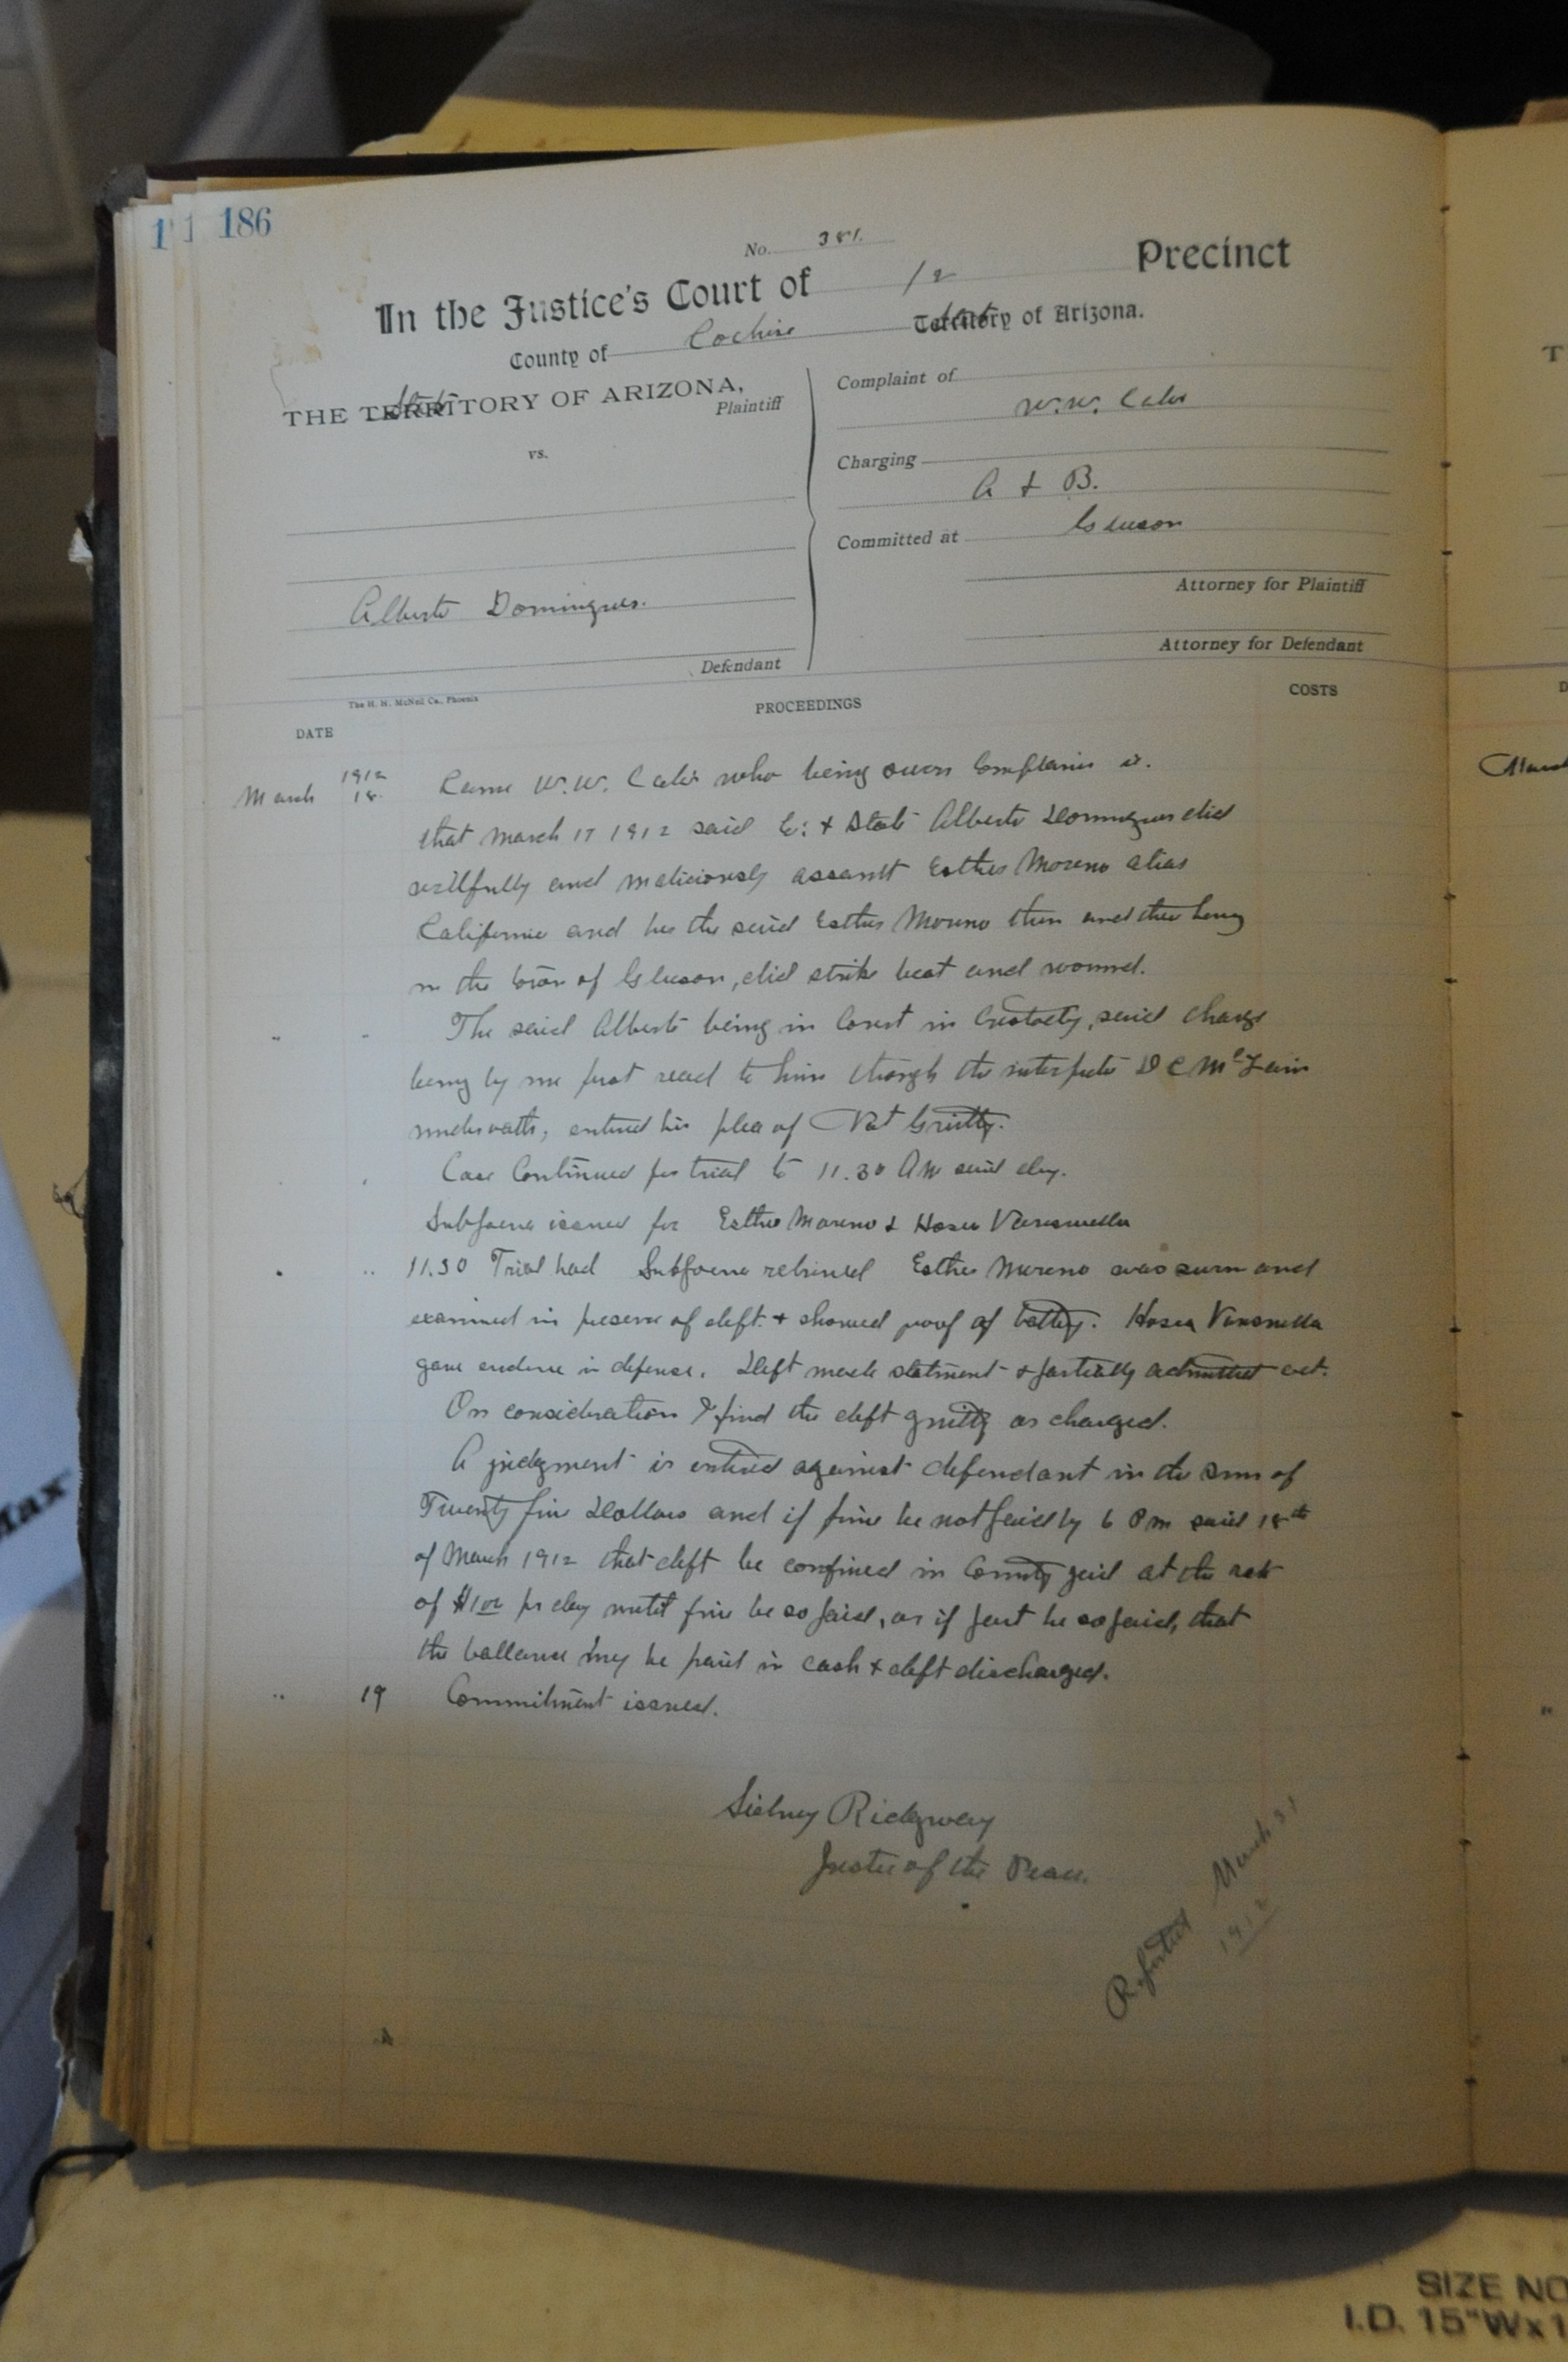 186
No. 381.
In the Justice's Court of 12 Precinct
County of Cochise State Territory of Arizona.
THE TERRITORY OF ARIZONA,
State
Plaintiff
vs.
Alberto Domingues.
Defendant
Complaint of
W.W.
Charging
A & B.
Committed at Gleeson
Attorney for Plaintiff
Attorney for Defendant
The H. H. McNeil Co., Phoenix
DATE
PROCEEDINGS
COSTS
1912
March 18 Came W.W. who being sworn Complains
that March 17 1912 said Co: & State Alberto Domingues did
willfully and maliciously assault Esther Moreno alias
California and her the said Esther Moreno then and there being
in the town of Gleeson, did strike beat and wound.
The said Alberto being in Court in Custody, said charge
being by me first read to him through the interpreter D C
under oath, entered his plea of Not Guilty.
Case Continued for trial to 11.30 AM said day.
Subpoena issued for Esther Moreno &
11.30 Trial had Subpoena returned Esther Moreno was sworn and
examined in presence of deft. & showed proof of battery.
gave evidence in defense. Deft made statment & partially admitted act.
On consideration I find the deft guilty as charged.
A judgment is entered against defendant in the sum of
Twenty five Dollars and if fine be not paid by 6 Pm said 18th
of March 1912 that deft be confined in County jail at the rate
of $1.00 pr day until fine be so paid, or if part be so paid, that
the ballance may be paid in cash & deft discharged.
19 Commitment issued.
Sidney Ridgway
Justice of the Peace.
Reported March 31
1912
SIZE NO
I.D. 15"W x 1
Max